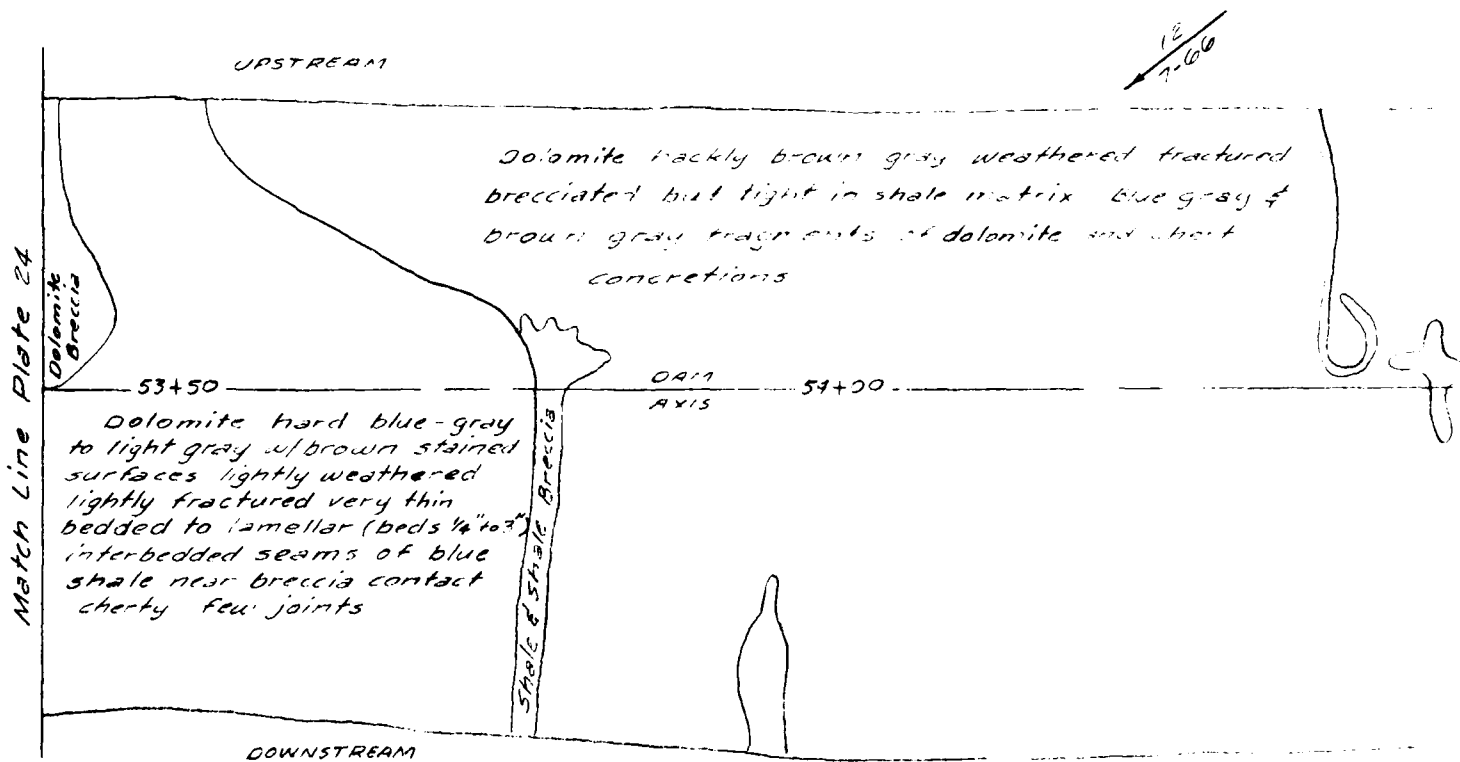 UPSTREAM
12
7-66
Dolomite hackly brown gray weathered fractured
brecciated but tight in shale matrix blue gray &
brown gray fragments of dolomite and chert
concretions
Match Line Plate 24
Dolomite
Breccia
53+50
DAM
AXIS
54+00
Dolomite hard blue-gray
to light gray w/brown stained
surfaces lightly weathered
lightly fractured very thin
bedded to lamellar (beds 1/4" to 3")
interbedded seams of blue
shale near breccia contact
cherty few joints
Shale & Shale Breccia
DOWNSTREAM